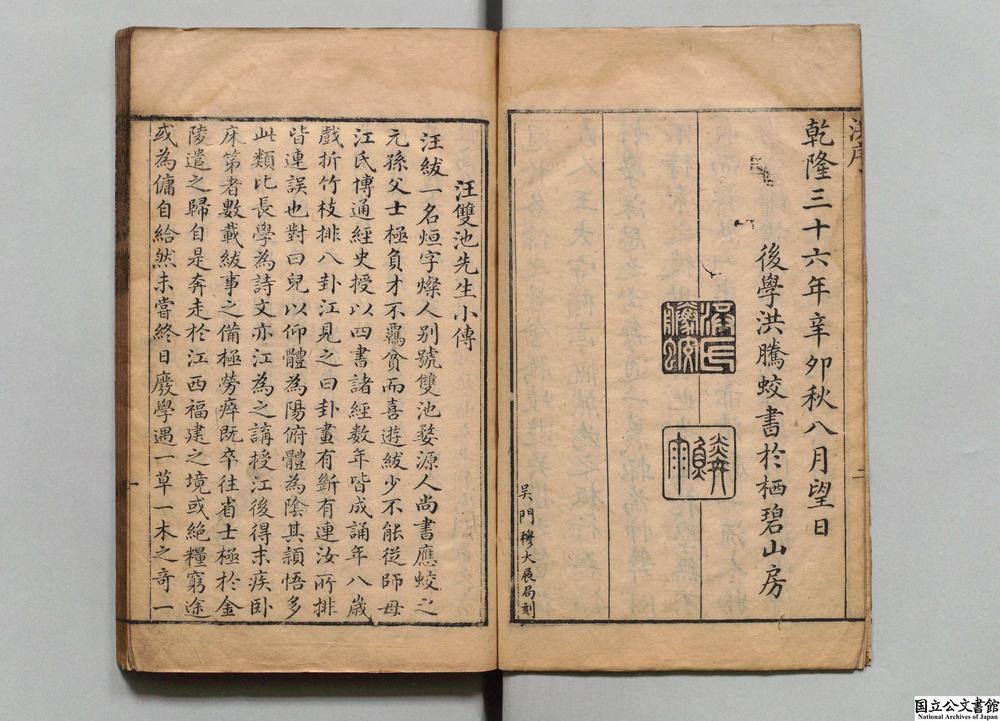 乾隆三十六年辛卯秋八月望日
後學洪騰蛟書於栖碧山房
洪氏騰蛟
鱗雨
吳門穆大展局刻
汪雙池先生小傳
汪紱一名烜字燦人别號雙池婺源人尚書應蛟之
元孫父士極負才不羈貧而喜遊紱少不能從師母
江氏博通經史授以四書諸經數年皆成誦年八歲
戲折竹枝排八卦江見之曰卦畫有斷有連汝所排
皆連誤也對曰兒以仰體為陽俯體為陰其頴悟多
此類比長學為詩文亦江為之講授江後得末疾卧
床第者數載紱事之備極勞瘁既卒往省士極於金
陵遣之歸自是奔走於江西福建之境或絶糧窮途
或為傭自給然未嘗終日廢學遇一草一木之奇一
一
国立公文書館
National Archives of Japan